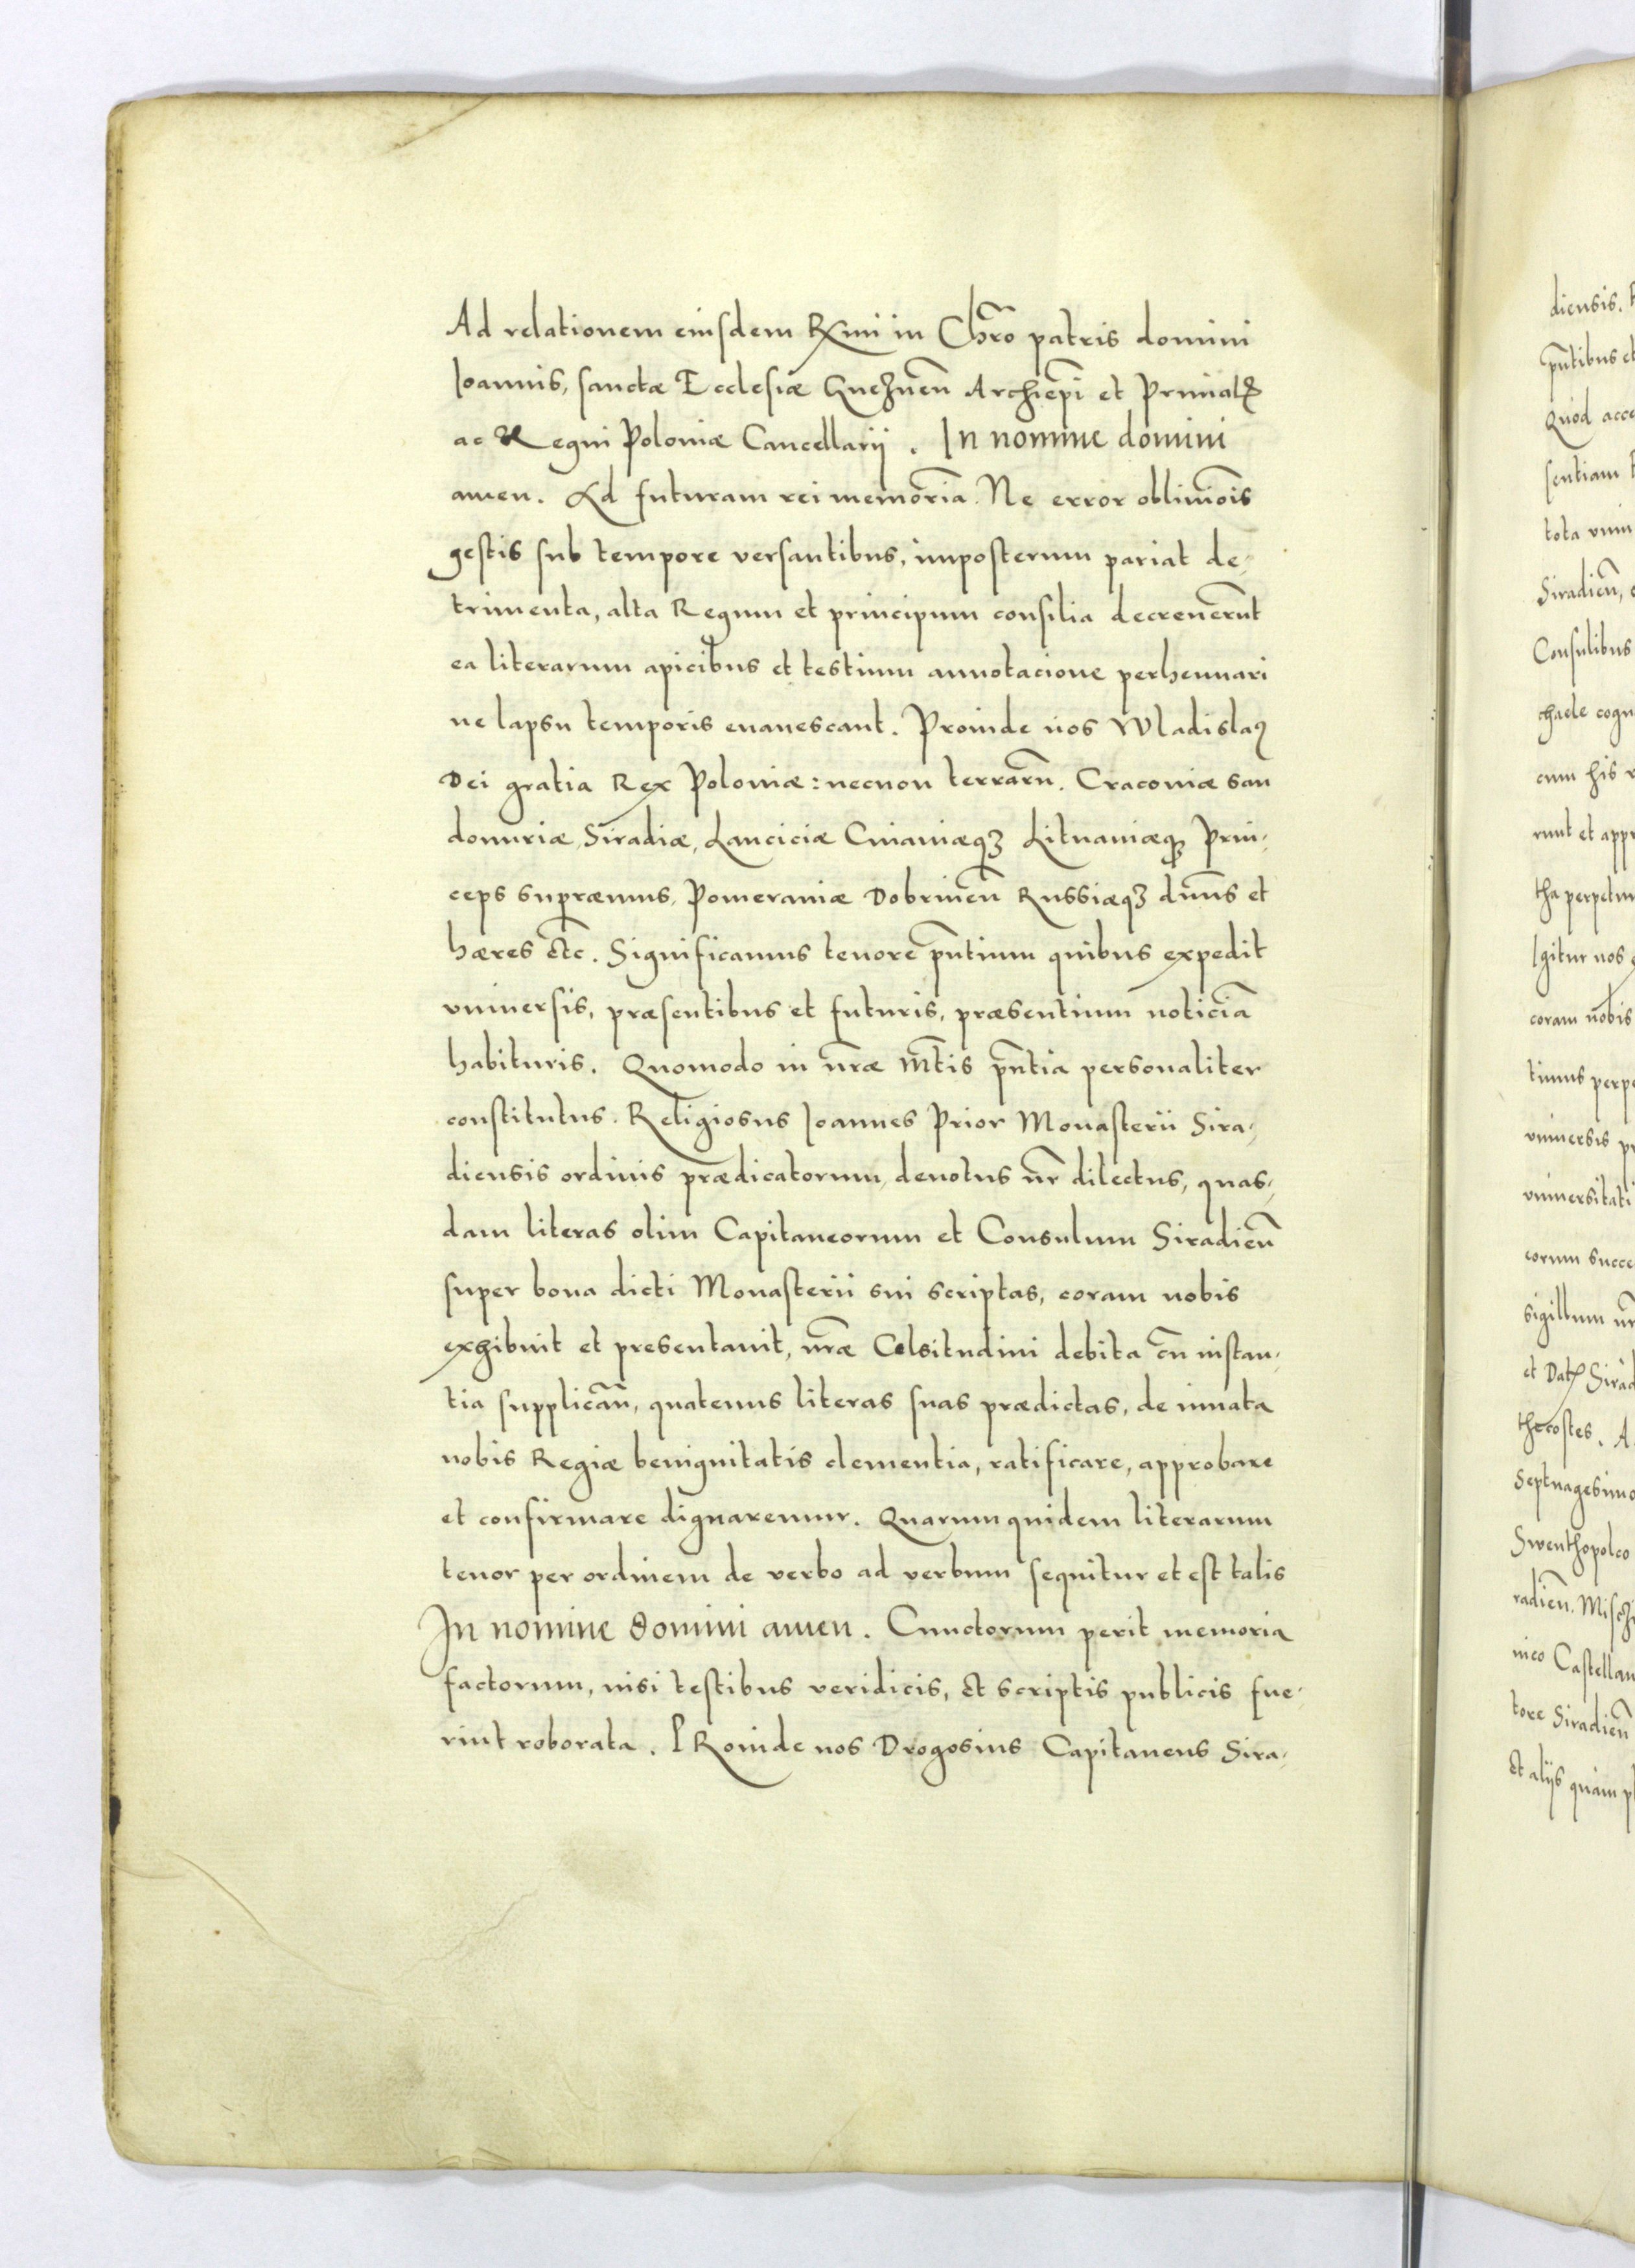 Ad relationem eiusdem Rxmi in Chr̃o patris domini
Ioannis, sanctæ Ecclesiæ Gneznen̄ Archiep̄i et Primatꝭ
ac Regni Poloniæ Cancellarij. In nomine domini
amen. Ad futuram rei memoriā. Ne error obliuiōis
gestis sub tempore versantibus, imposterum pariat de-
trimenta, alta Regum et principum consilia decreuerūt
ea literarum apicibus et testium annotacione perhennari
ne lapsu temporis euanescant. Proinde nos Wladislaꝰ
Dei gratia Rex Poloniæ: necnon terrarū. Cracouiæ san
domiriæ, Siradiæ, Lanciciæ Cuiauiæqꝫ Lituaniæqꝫ Prin-
ceps supræmus, Pomeraniæ Dobrinen̄ Russiæqꝫ dn̄us et
hæres etc̄. Significamus tenore pn̄tium quibus expedit
vniuersis, præsentibus et futuris, præsentium noticiā
habituris. Quomodo in nr̄æ M̄tis pn̄tia personaliter
constitutus. Religiosus Ioannes Prior Monasterii Sira-
diensis ordinis prædicatorum, deuotus nr̄ dilectus, quas-
dam literas olim Capitaneorum et Consulum Siradien̄
super bona dicti Monasterii sui scriptas, coram nobis
exhibuit et presentauit, nr̄æ Celsitudini debita cū instan-
tia supplicān, quatenus literas suas prædictas, de innata
nobis Regiæ benignitatis clementia, ratificare, approbare
et confirmare dignaremur. Quarum quidem literarum
tenor per ordinem de verbo ad verbum sequitur et est talis
In nomine domini amen. Cunctorum perit memoria
factorum, nisi testibus veridicis, et scriptis publicis fue-
rint roborata. PRoinde nos Drogosius Capitaneus Sira-
diensis.
pn̄tibus et
Quod acce
sentiam
tota vniu
Siradien̄,
Consulibus
chaele cogn
cum his
runt et appr
tha perpetu
Igitur nos
coram nobis
timus perpe
vniuersis pr
vniuersitati
eorum succe
sigillum nr̄
et Datꝭ Sirad
thecostes. A
Septuagesimo
Swenthopolco
radien̄. Mischi
nico Castellan
tore Siradien̄
Et alijs quam pl